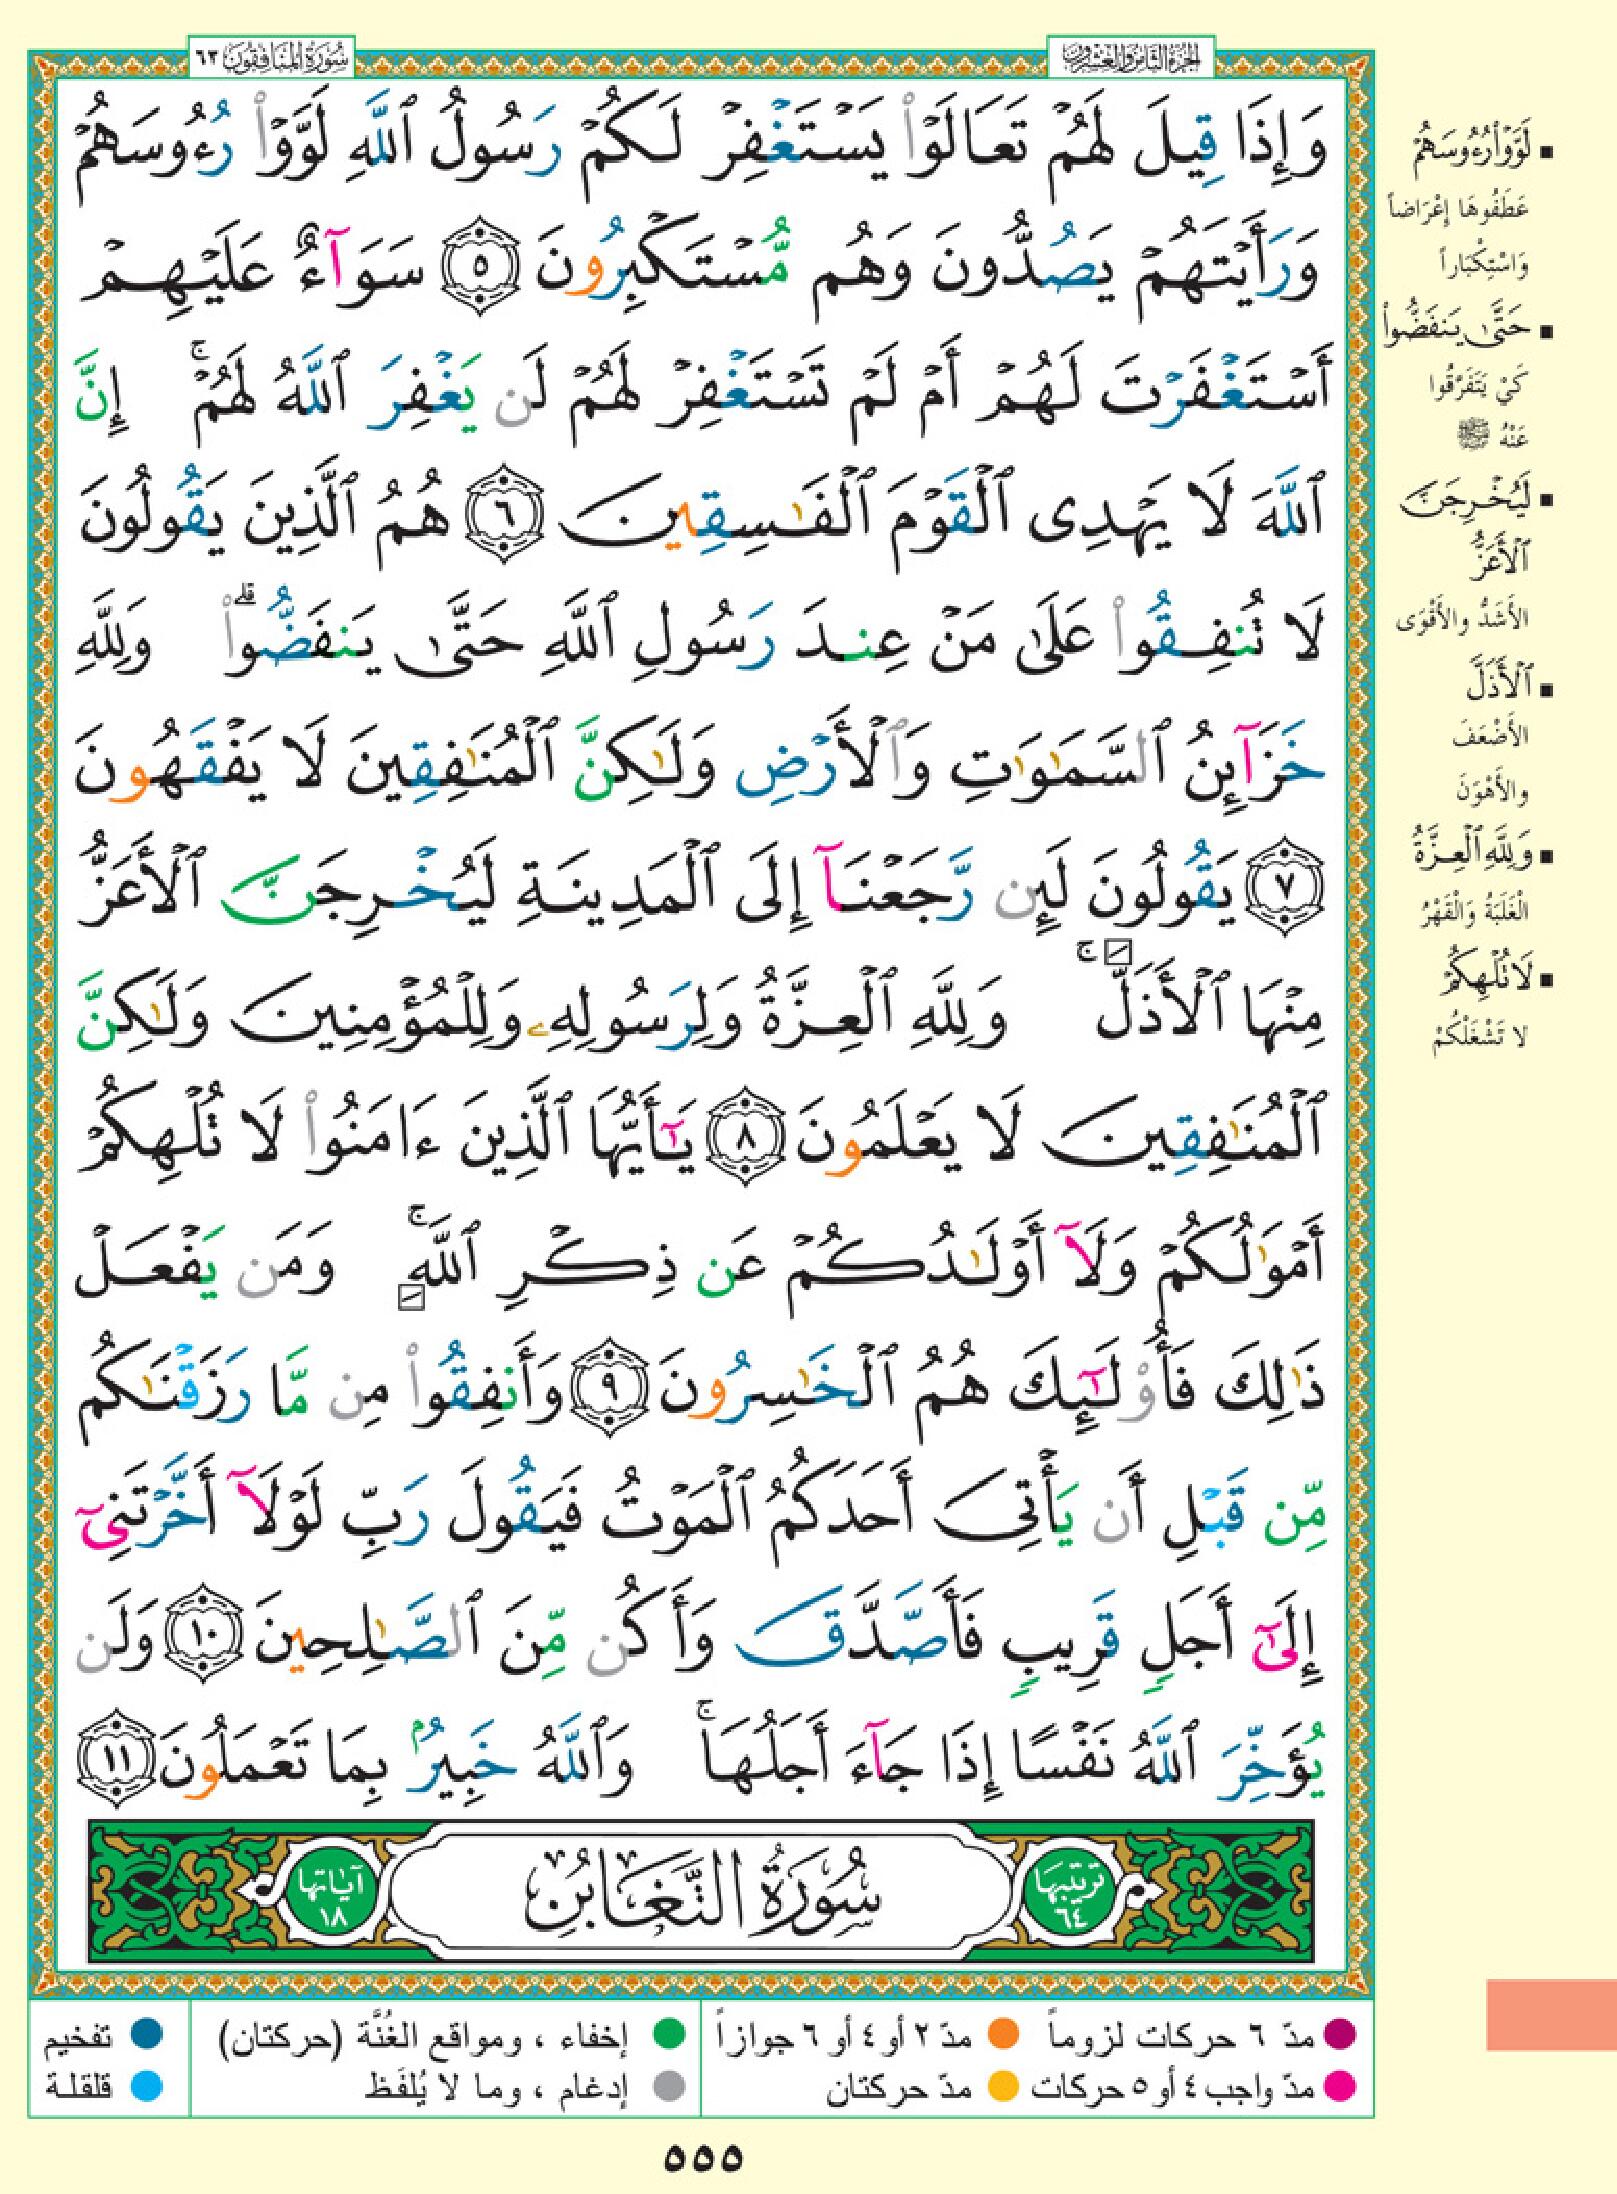 الجزء الثامن والعشرون
سورة المنافقون ٦٣
وَإِذَا قِيلَ لَهُمْ تَعَالَوْا۟ يَسْتَغْفِرْ لَكُمْ رَسُولُ ٱللَّهِ لَوَّوْا۟ رُءُوسَهُمْ
وَرَأَيْتَهُمْ يَصُدُّونَ وَهُم مُّسْتَكْبِرُونَ ٥ سَوَآءٌ عَلَيْهِمْ
أَسْتَغْفَرْتَ لَهُمْ أَمْ لَمْ تَسْتَغْفِرْ لَهُمْ لَن يَغْفِرَ ٱللَّهُ لَهُمْ ۚ إِنَّ
ٱللَّهَ لَا يَهْدِى ٱلْقَوْمَ ٱلْفَـٰسِقِينَ ٦ هُمُ ٱلَّذِينَ يَقُولُونَ
لَا تُنفِقُوا۟ عَلَىٰ مَنْ عِندَ رَسُولِ ٱللَّهِ حَتَّىٰ يَنفَضُّوا۟ ۗ وَلِلَّهِ
خَزَآئِنُ ٱلسَّمَـٰوَٰتِ وَٱلْأَرْضِ وَلَـٰكِنَّ ٱلْمُنَـٰفِقِينَ لَا يَفْقَهُونَ
٧ يَقُولُونَ لَئِن رَّجَعْنَآ إِلَى ٱلْمَدِينَةِ لَيُخْرِجَنَّ ٱلْأَعَزُّ
مِنْهَا ٱلْأَذَلَّ ۚ وَلِلَّهِ ٱلْعِزَّةُ وَلِرَسُولِهِۦ وَلِلْمُؤْمِنِينَ وَلَـٰكِنَّ
ٱلْمُنَـٰفِقِينَ لَا يَعْلَمُونَ ٨ يَـٰٓأَيُّهَا ٱلَّذِينَ ءَامَنُوا۟ لَا تُلْهِكُمْ
أَمْوَٰلُكُمْ وَلَآ أَوْلَـٰدُكُمْ عَن ذِكْرِ ٱللَّهِ ۚ وَمَن يَفْعَلْ
ذَٰلِكَ فَأُو۟لَـٰٓئِكَ هُمُ ٱلْخَـٰسِرُونَ ٩ وَأَنفِقُوا۟ مِن مَّا رَزَقْنَـٰكُم
مِّن قَبْلِ أَن يَأْتِىَ أَحَدَكُمُ ٱلْمَوْتُ فَيَقُولَ رَبِّ لَوْلَآ أَخَّرْتَنِىٓ
إِلَىٰٓ أَجَلٍ قَرِيبٍ فَأَصَّدَّقَ وَأَكُن مِّنَ ٱلصَّـٰلِحِينَ ١٠ وَلَن
يُؤَخِّرَ ٱللَّهُ نَفْسًا إِذَا جَآءَ أَجَلُهَا ۚ وَٱللَّهُ خَبِيرٌۢ بِمَا تَعْمَلُونَ ١١
ترتيبها ٦٤
سُورَةُ التَّغَابُنِ
آياتها ١٨
لَوَّوْا۟ رُءُوسَهُمْ
عَطَفُوهَا إِعْرَاضاً
وَاسْتِكْبَاراً
حَتَّىٰ يَنفَضُّوا۟
كَيْ يَتَفَرَّقُوا
عَنْهُ ﷺ
لَيُخْرِجَنَّ
ٱلْأَعَزُّ
الأَشَدُّ والأَقْوَى
ٱلْأَذَلَّ
الأَضْعَفَ
والأَهْوَنَ
وَلِلَّهِ ٱلْعِزَّةُ
الْغَلَبَةُ وَالْقَهْرُ
لَا تُلْهِكُمْ
لا تَشْغَلْكُمْ
مدّ ٦ حركات لزوماً مدّ ٢ أو ٤ أو ٦ جوازاً إخفاء ، ومواقع الغُنَّة (حركتان) تفخيم
مدّ واجب ٤ أو ٥ حركات مدّ حركتان إدغام ، وما لا يُلفَظ قلقلة
٥٥٥